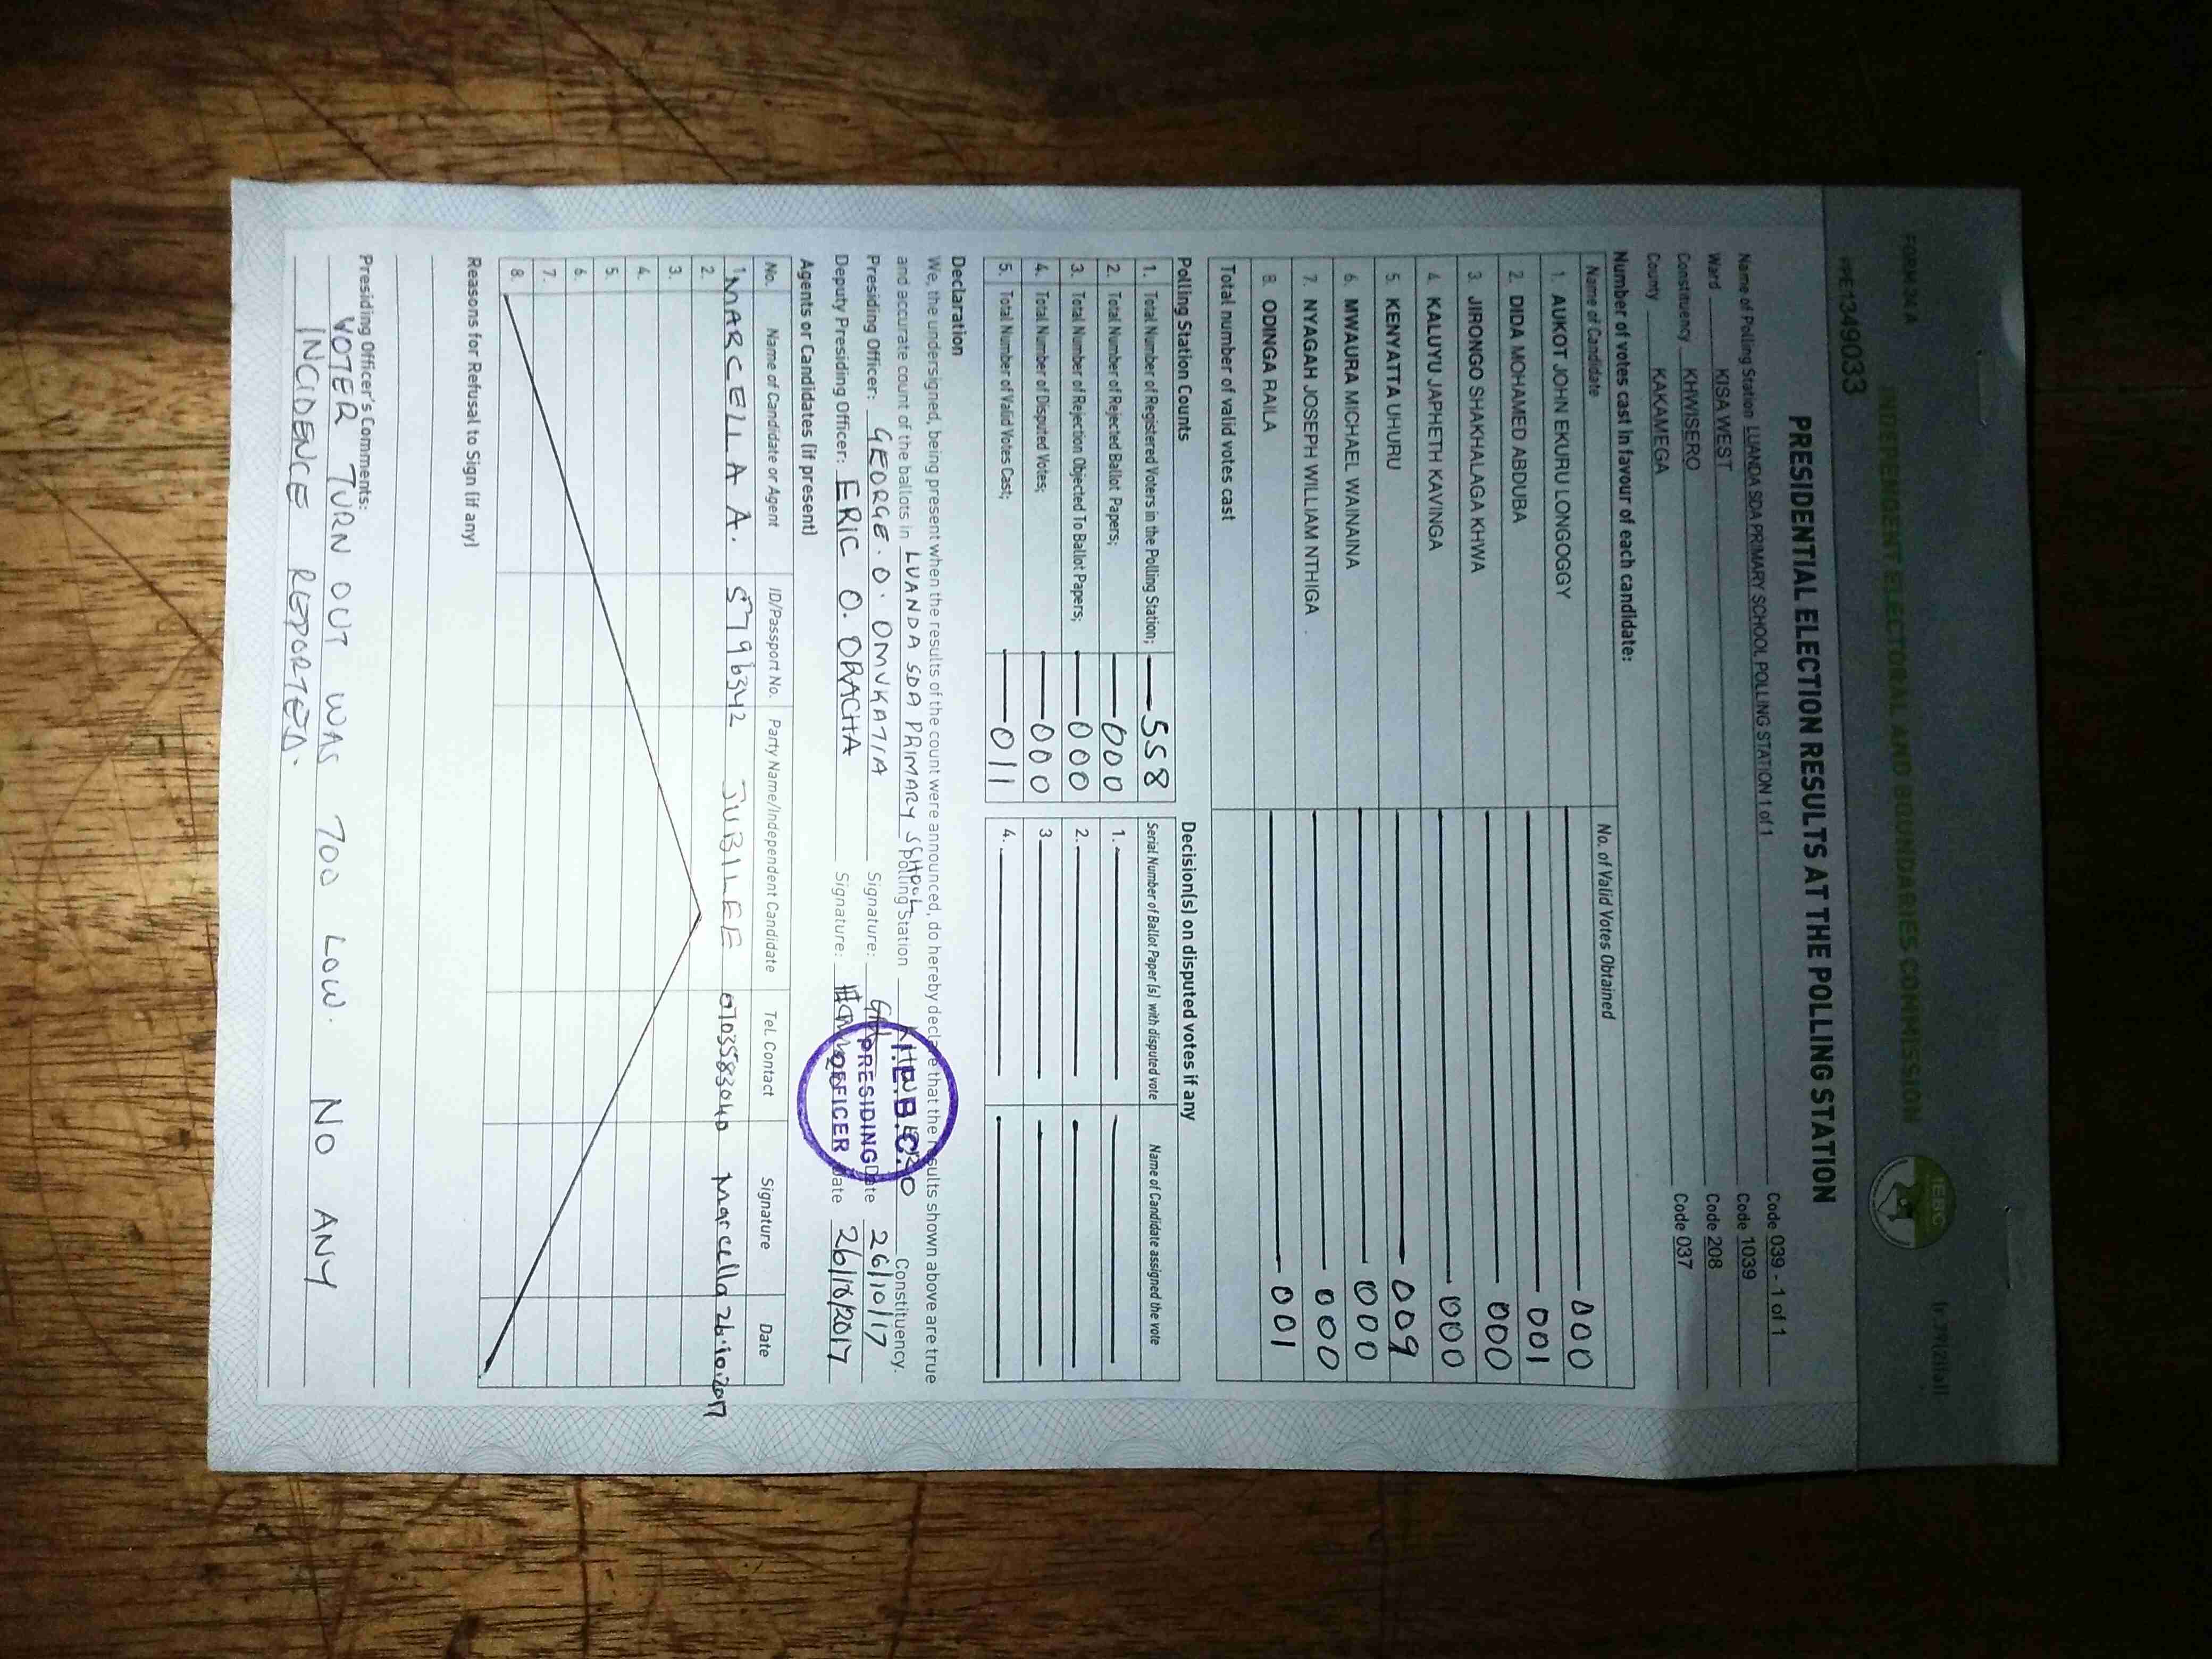 FORM 34 A
INDEPENDENT ELECTORAL AND BOUNDARIES COMMISSION
IEBC
PPE1349033
PRESIDENTIAL ELECTION RESULTS AT THE POLLING STATION
Name of Polling Station LUANDA SDA PRIMARY SCHOOL POLLING STATION 1 of 1 Code 039 - 1 of 1
Ward KISA WEST Code 1039
Constituency KHWISERO Code 208
County KAKAMEGA Code 037
Number of votes cast in favour of each candidate:
Name of Candidate No. of Valid Votes Obtained
1. AUKOT JOHN EKURU LONGOGGY 000
2. DIDA MOHAMED ABDUBA 001
3. JIRONGO SHAKHALAGA KHWA 000
4. KALUYU JAPHETH KAVINGA 000
5. KENYATTA UHURU 009
6. MWAURA MICHAEL WAINAINA 000
7. NYAGAH JOSEPH WILLIAM NTHIGA 000
8. ODINGA RAILA 001
Total number of valid votes cast
Polling Station Counts Decision(s) on disputed votes if any
1. Total Number of Registered Voters in the Polling Station; 558 Serial Number of Ballot Paper (s) with disputed vote Name of Candidate assigned the vote
2. Total Number of Rejected Ballot Papers; 000 1.
3. Total Number of Rejection Objected To Ballot Papers; 000 2.
4. Total Number of Disputed Votes; 000 3
5. Total Number of Valid Votes Cast; 011 4.
Declaration
We, the undersigned, being present when the results of the count were announced, do hereby declare that the results shown above are true
and accurate count of the ballots in LUANDA SDA PRIMARY SCHOOL Polling Station KHWISERO Constituency.
Presiding Officer: GEORGE. O. OMUKATIA Signature: Date 26/10/17
Deputy Presiding Officer: ERIC O. ORACHA Signature: Date 26/10/2017
I.E.B.C.
PRESIDING
OFFICER
Agents or Candidates (if present)
No. Name of Candidate or Agent ID/Passport No. Party Name/Independent Candidate Tel. Contact Signature Date
1. MARCELLA A. 5796342 JUBILEE 0703583040 Marcella 26.10.2017
2.
3.
4.
5.
6.
7.
8.
Reasons for Refusal to Sign (if any)
Presiding Officer's Comments:
VOTER TURN OUT WAS TOO LOW. NO ANY
INCIDENCE REPORTED.